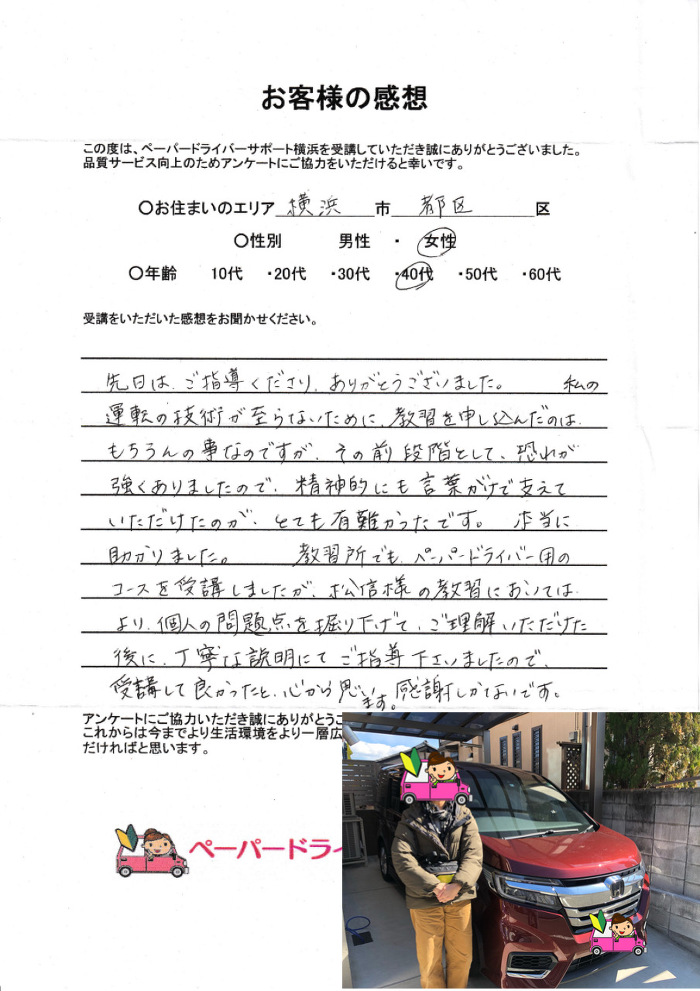 お客様の感想
この度は、ペーパードライバーサポート横浜を受講していただき誠にありがとうございました。
品質サービス向上のためアンケートにご協力をいただけると幸いです。
〇お住まいのエリア 横浜 市 都区 区
〇性別 男性 ・ 女性
〇年齢 10代 ・20代 ・30代 ・40代 ・50代 ・60代
受講をいただいた感想をお聞かせください。
先日は、ご指導くださり、ありがとうございました。 私の
運転の技術が至らないために、教習を申し込んだのは
もちろんの事なのですが、その前段階として、恐れが
強くありましたので、精神的にも言葉がけで支えて
いただけたのが、とても有難かったです。 本当に
助かりました。 教習所でも、ペーパードライバー用の
コースを受講しましたが、松信様の教習においては
より、個人の問題点を掘り下げて、ご理解いただけた
後に、丁寧な説明にてご指導下さいましたので、
受講して良かったと、心から思います。感謝しかないです。
アンケートにご協力いただき誠にありがとうご
これからは今までより生活環境をより一層広
だければと思います。
ペーパードライ